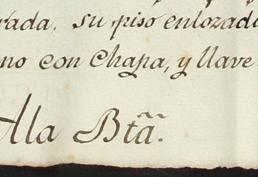 rada, su piso enlozado
no con Chapa, y llave
A la Bt̃ã.